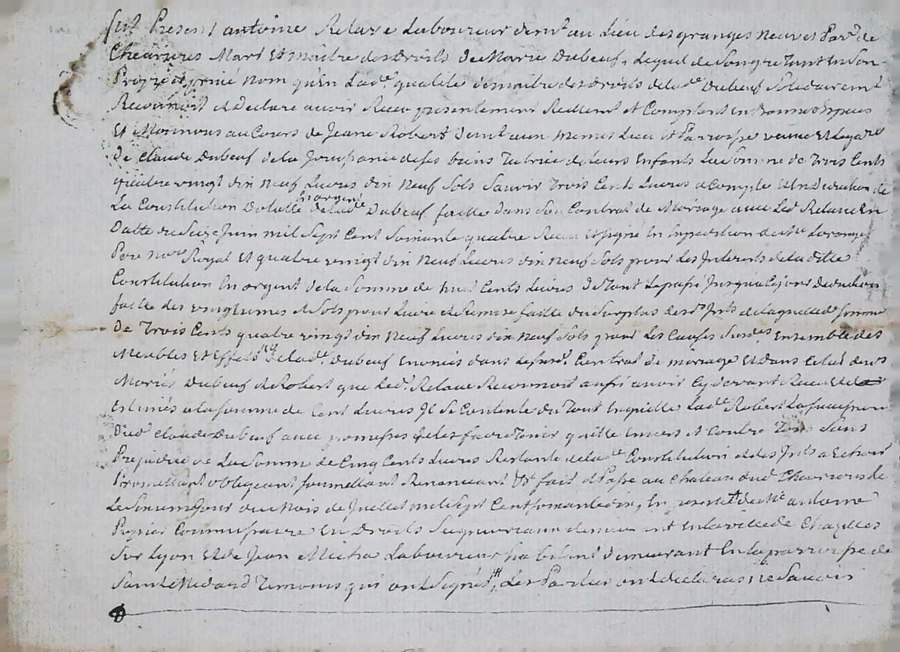 fut Present antoine Relave Laboureur demt au Lieu des granges neuves Parre de
Chevrieres Mary Et maitre des Droits de Marie Dubeuf, Lequel de Son gre Tant En Son
Propre et privé nom qu'en Lade qualité de maitre des droits de lade Dubeuf Solidairemt
Reconnoit et Declare avoir Receu presentement Reellement et Comptant En bonnes Especes
Et Monnoies au Cours de Jeane Robert demt aux memes Lieu et Parroisse veuve et
De Claude Dubeuf de la de ses biens Tutrice de leurs Enfants La Somme de Trois Cents
quatre vingt dix Neuf Livres dix Neuf Sols Savoir Trois Cents Livres a Compte Et en Deduction de
La Constitution Dotalle en argent de lade Dubeuf faitte dans Son Contrat de Mariage avec Led Relave En
Datte du Seize Juin mil Sept Cent Soixante quatre Receu Et Signé En Expedition de Me
Pere nore Royal Et quatre vingt dix Neuf Livres dix Neuf Sols pour Les Interets de la ditte
Constitution En argent de la Somme de huit Cents Livres de Tout Le passé Jusqu'a Ce Jour deduction
faitte des vingtiemes et Sols pour Livre du Surplus des Ints de laquelle Somme
De Trois Cents quatre vingt dix Neuf Livres dix Neuf Sols pour Les Causes Susdes Ensemble des
Meubles Et Effets de lade Dubeuf Enoncés dans Contrat de mariage Et Dans Celui des
Mariés Dubeuf Et Robert que Led Relave Reconnoit aussi avoir Cy devant Receu
Estimés a la Somme de Cent Livres Il Se Contente du Tout En quitte Lade Robert La Succession
Dud Claude Dubeuf avec promesses de les faire Tenir quitte Envers Et Contre Tous Sans
Prejudice de La Somme de Cinq Cents Livres Restante de lade Constitution et des Ints a Echoir
Promettant obligeant Soumettant Renonceant &t fait et Passé au Chateau dud Chevrieres Le
Le Sixieme Jour du Mois de Juillet mil Sept Cent Soixante dix, En presence de Me antoine
Commissaire En Droits Seigneuriaux demeurant En la ville de Chazelles
Sur Lyon Et de Jean Laboureur habitant demeurant En la parroisse de
Saint Medard Temoins qui ont Signés, Les Parties ont declarées ne Savoir